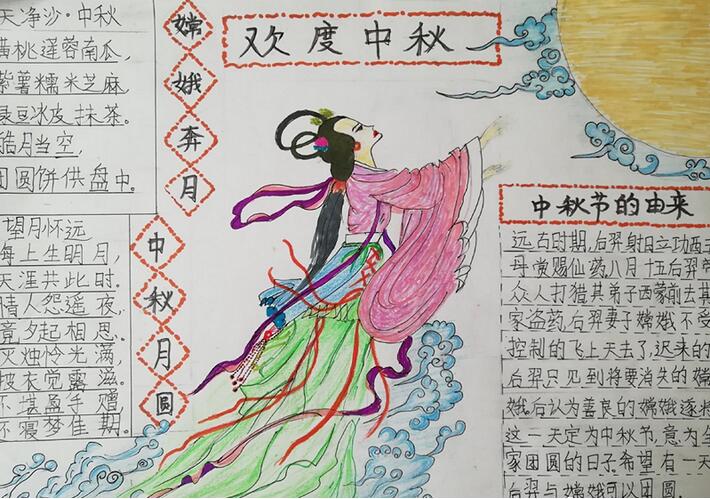 欢度中秋
嫦娥奔月
天净沙·中秋
黄桃莲蓉南瓜,
紫薯糯米芝麻
绿豆冰皮抹茶。
皓月当空,
团圆饼供盘中。
中秋月圆
望月怀远
海上生明月,
天涯共此时。
情人怨遥夜,
竟夕起相思。
灭烛怜光满,
披衣觉露滋。
不堪盈手赠
还寝梦佳期。
中秋节的由来
远古时期,后羿射日立功西王
母赏赐仙药,八月十五后羿带
众人打猎其弟子西蒙前去其
家盗药,后羿妻子嫦娥不受
控制的飞上天去了,迟来的
后羿只见到将要消失的嫦
娥后认为善良的嫦娥逐将
这一天定为中秋节,意为全
家团圆的日子,希望有一天
后羿与嫦娥可以团圆